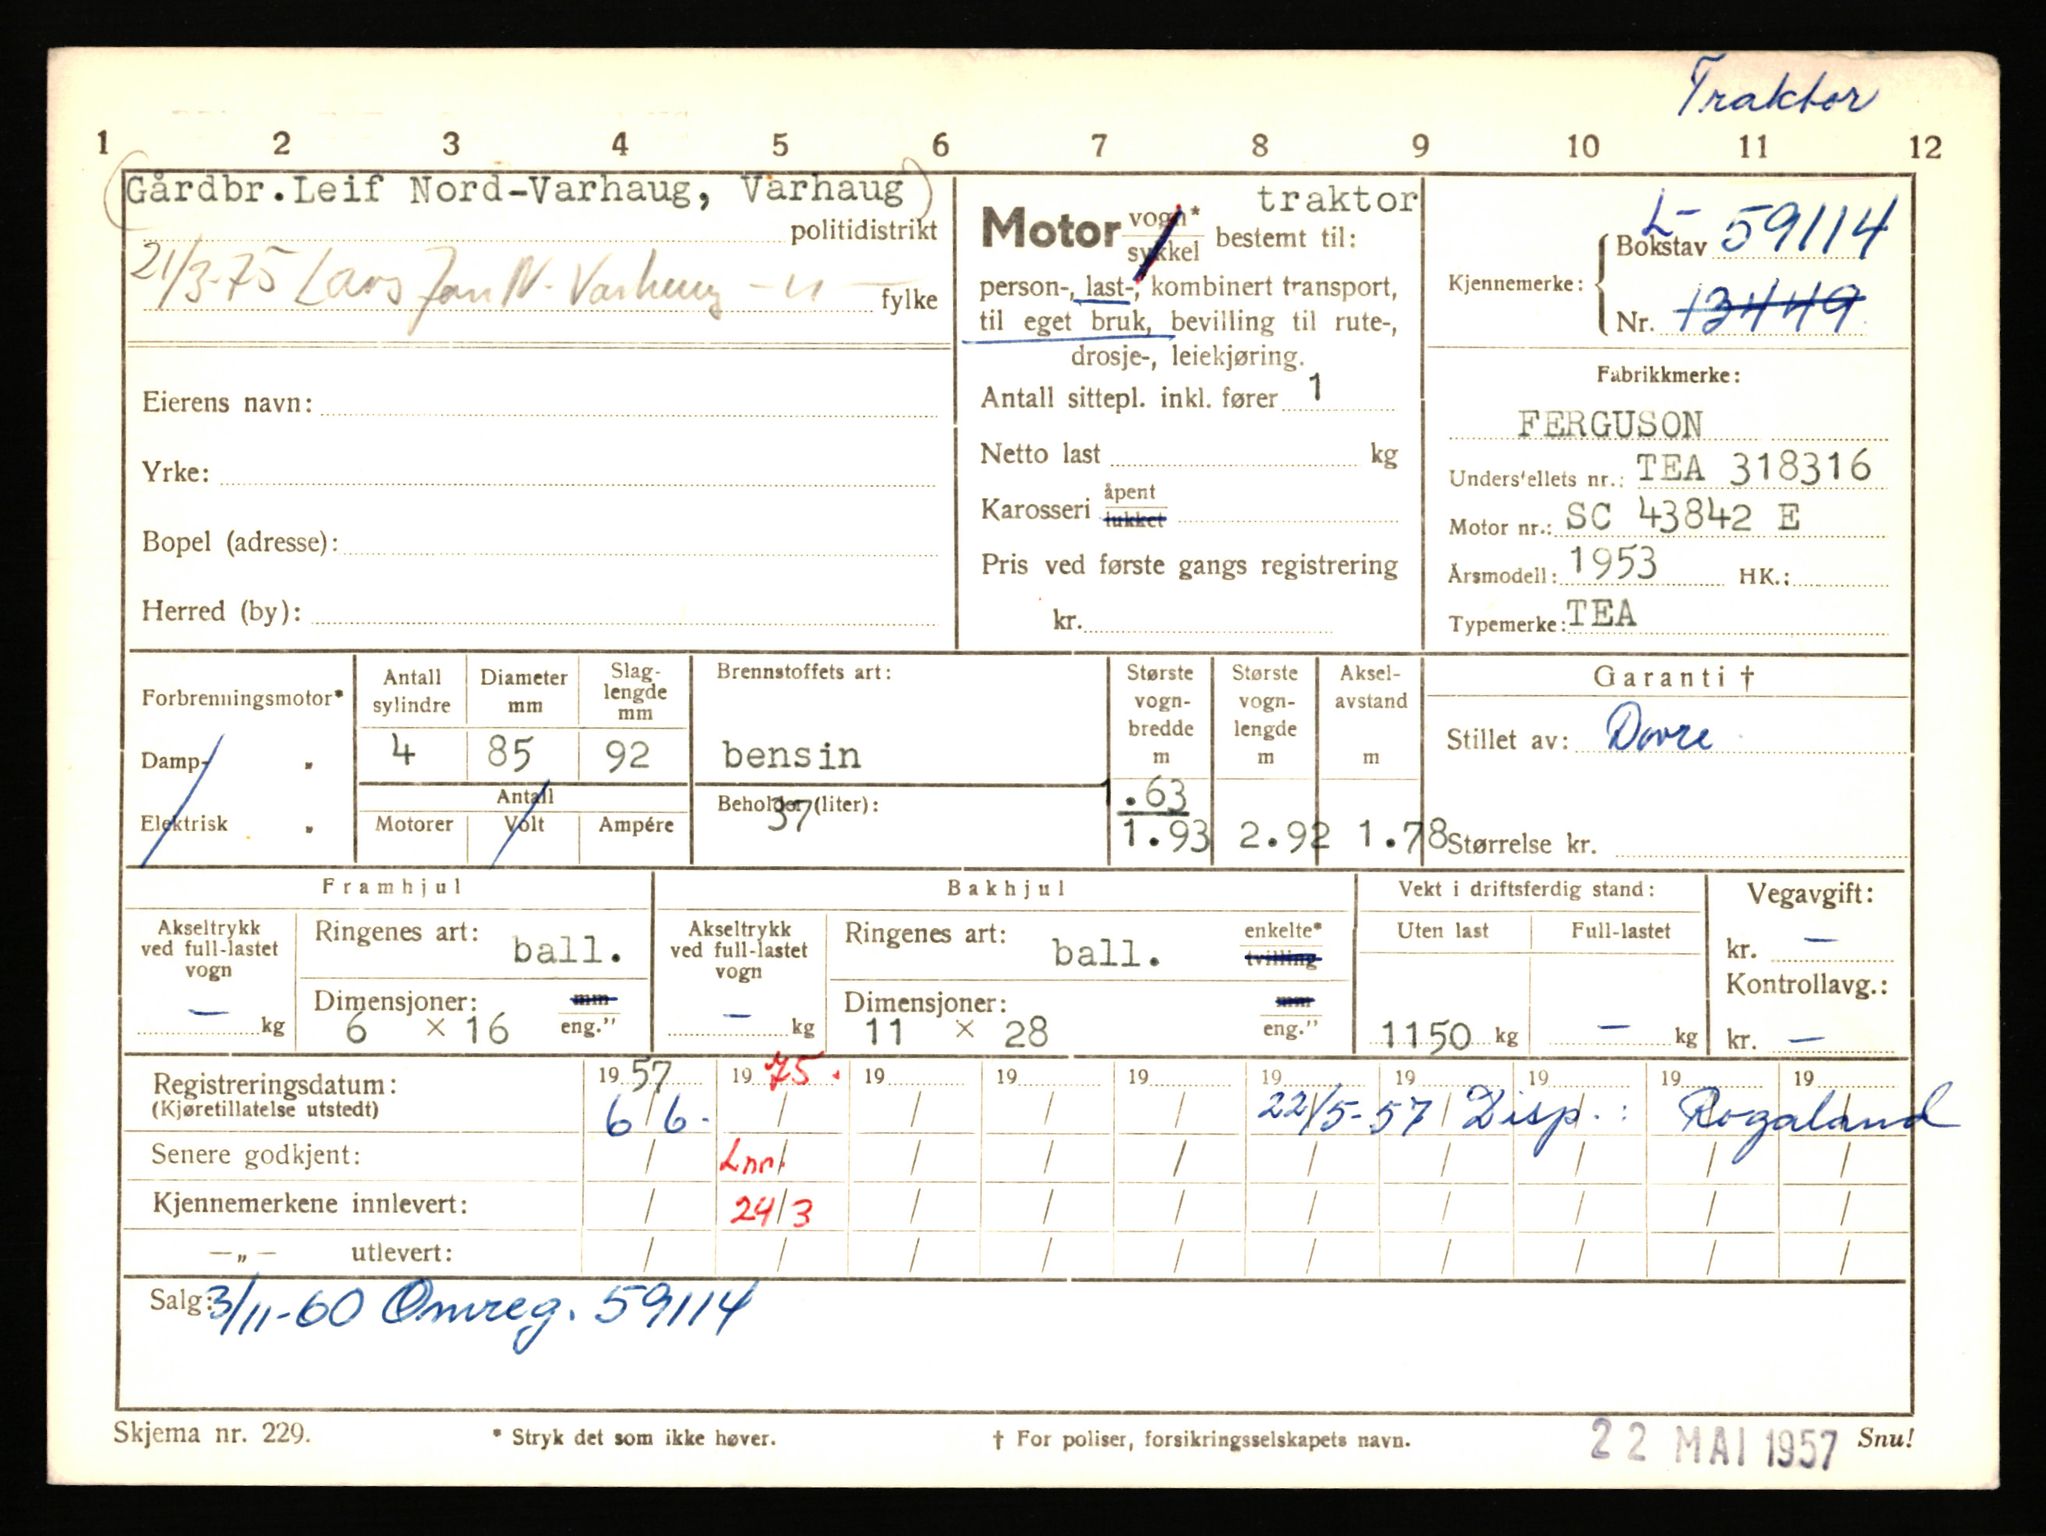 Traktor
1 2 3 4 5 6 7 8 9 10 11 12
(Gårdbr. Leif Nord-Varhaug, Varhaug)
politidistrikt
21/3-75 Lars Jan N. Varhaug -"-
fylke
Eierens navn:
Yrke:
Bopel (adresse):
Herred (by):
traktor
Motor vogn* sykkel bestemt til:
person-, last-, kombinert transport,
til eget bruk, bevilling til rute-,
drosje-, leiekjøring.
Antall sittepl. inkl. fører 1
Netto last kg
Karosseri åpent lukket
Pris ved første gangs registrering
kr.
Kjennemerke: Bokstav L- 59114
Nr. 13449
Fabrikkmerke:
FERGUSON
Unders'ellets nr.: TEA 318316
Motor nr.: SC 43842 E
Årsmodell: 1953 HK.:
Typemerke: TEA
Forbrenningsmotor*
Damp- "
Elektrisk "
Antall sylindre 4
Diameter mm 85
Slag-lengde mm 92
Antall
Motorer Volt Ampére
Brennstoffets art:
bensin
Beholder (liter): 37
Største vogn-bredde m .63 1.93
Største vogn-lengde m 2.92
Aksel-avstand m 1.78
Garanti †
Stillet av: Dovre
Størrelse kr.
Framhjul
Akseltrykk ved full-lastet vogn — kg
Ringenes art: ball.
Dimensjoner: mm
6 × 16 eng."
Bakhjul
Akseltrykk ved full-lastet vogn — kg
Ringenes art: ball. enkelte* tvilling
Dimensjoner: mm
11 × 28 eng."
Vekt i driftsferdig stand:
Uten last Full-lastet
1150 kg — kg
Vegavgift:
kr. —
Kontrollavg.:
kr. —
Registreringsdatum: 1957 1975. 19 19 19 19 19 19 19 19
(Kjøretillatelse utstedt) 6/6- / / / / 22/5-57 Disp.: Rogaland
Senere godkjent: / Lnr. / / / / / / / /
Kjennemerkene innlevert: / 24/3 / / / / / / / /
—„— utlevert: / / / / / / / / / /
Salg: 3/11-60 Omreg. 59114
Skjema nr. 229.
* Stryk det som ikke høver.
† For poliser, forsikringsselskapets navn.
22 MAI 1957
Snu!